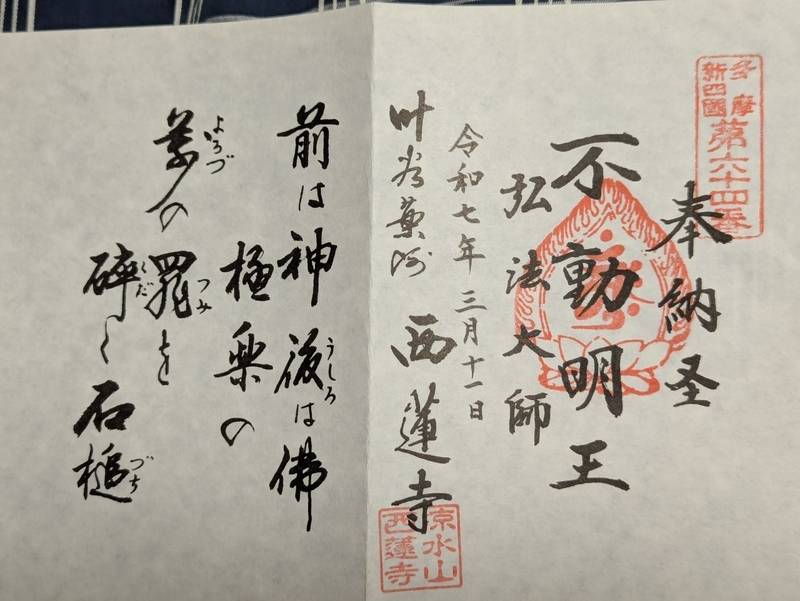 多摩
新四國
第六十四番
奉納圣
不動明王
弘法大師
令和七年三月十一日
西蓮寺
京水山
西蓮寺
前は神後は佛
うしろ
極楽の
萬の罪を
よろづ
つみ
碎く石槌
くだ
づち